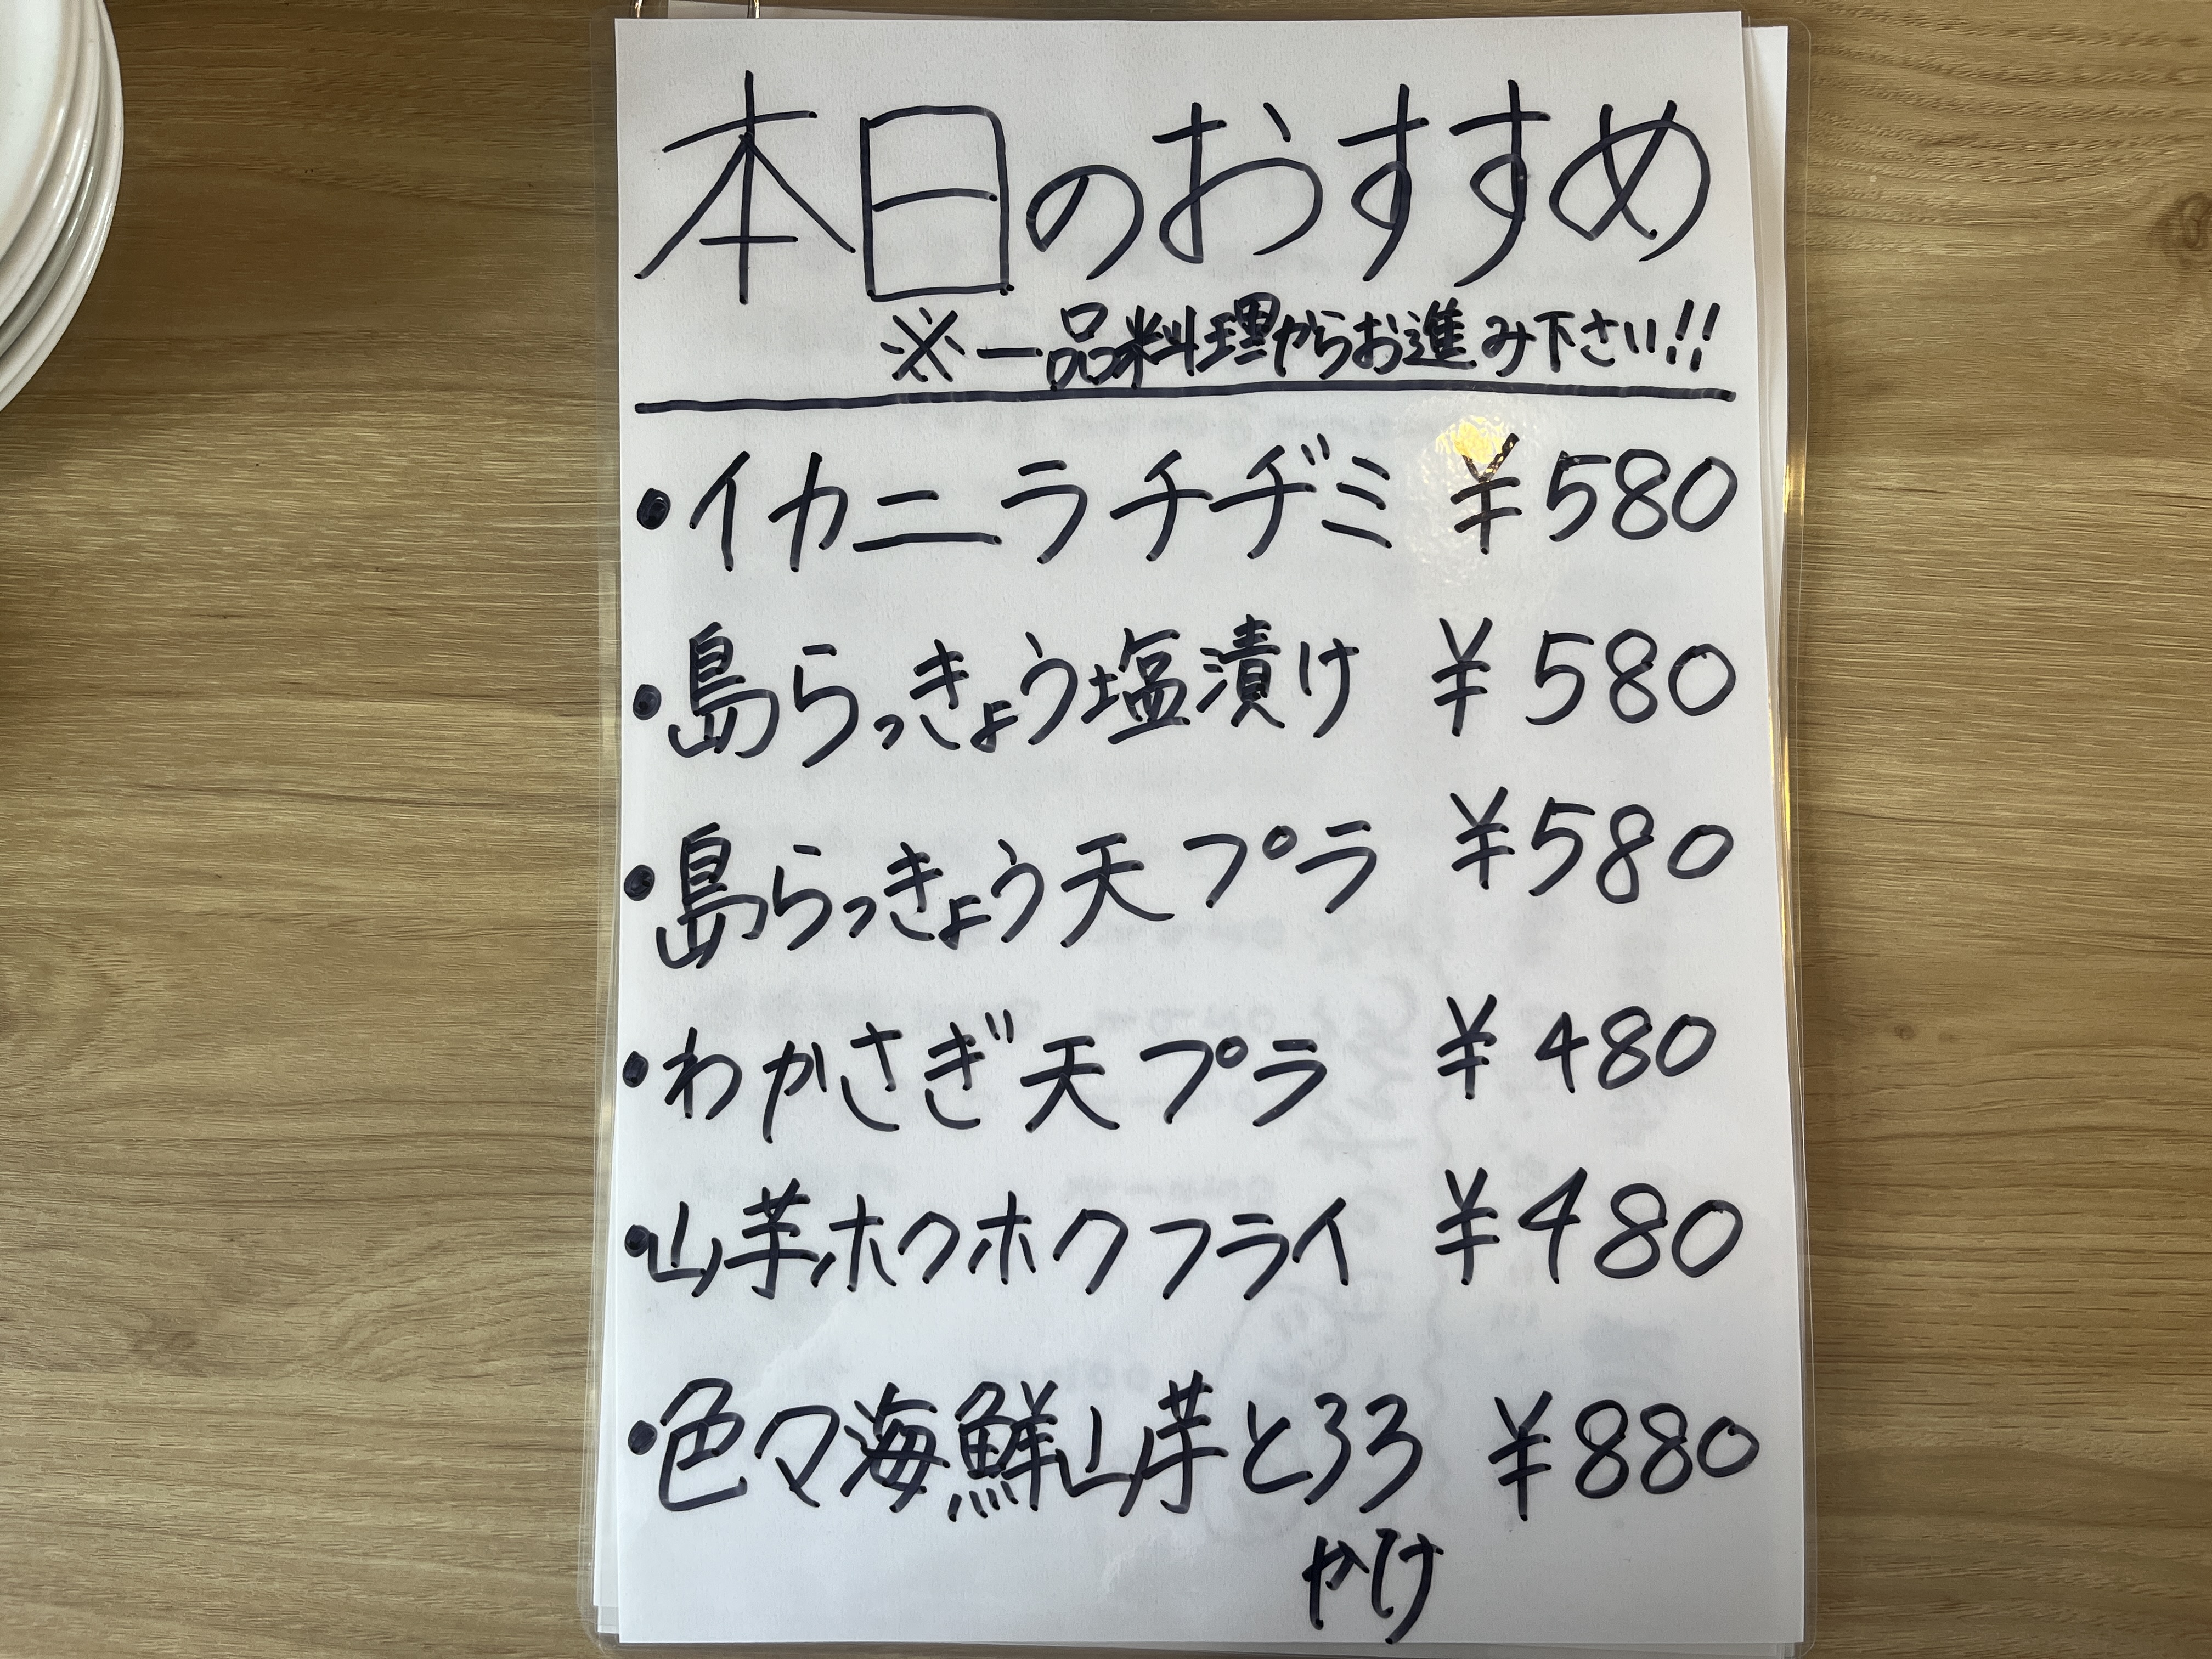 本日のおすすめ
※一品料理からお進み下さい!!
・イカニラチヂミ ¥580
・島らっきょう塩漬け ¥580
・島らっきょう天プラ ¥580
・わかさぎ天プラ ¥480
・山芋ホクホクフライ ¥480
・色々海鮮山芋とろろ ¥880
かけ